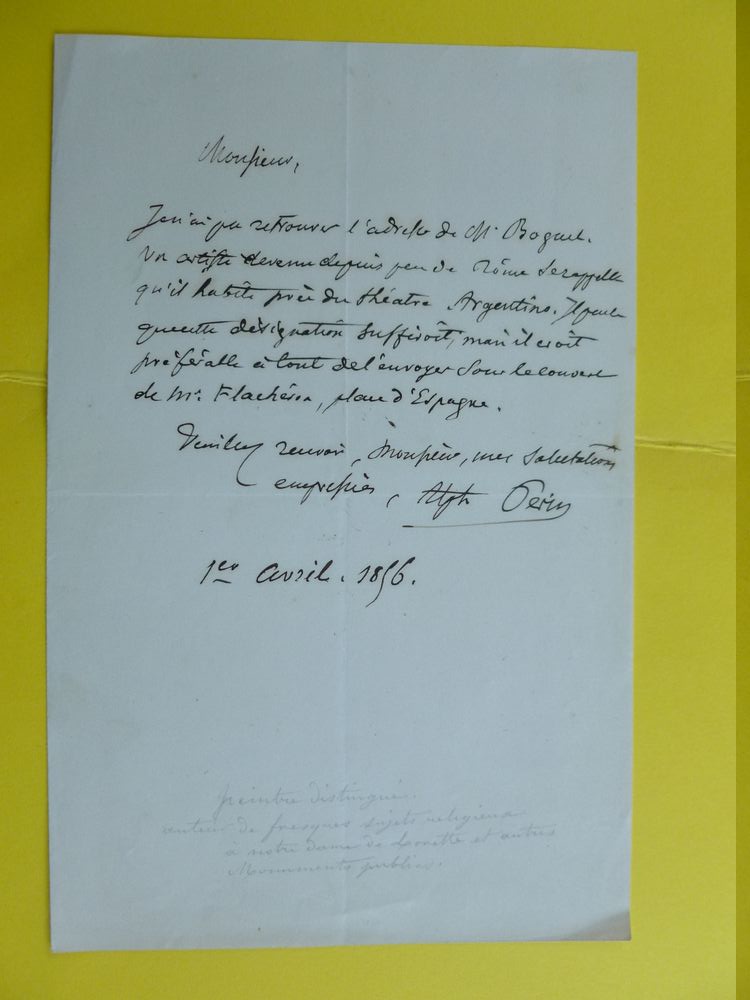 Monsieur,
Je n'ai pu retrouver l'adresse de Mr Boguet.
Un artiste devenu depuis peu de Rôme se rappelle
qu'il habite près du théatre Argentino. Il pense
que cette désignation suffiroit, mais il croit
préférable à tout de l'envoyer sous le couvert
de Mr. Flachéron, place d'Espagne.
Veuillez recevoir, Monsieur, mes salutations
empressées, Alph Perin
1er avril. 1856.
peintre distingué.
auteur de fresques sujets religieux
à notre dame de Lorette et autres
Monuments publics.